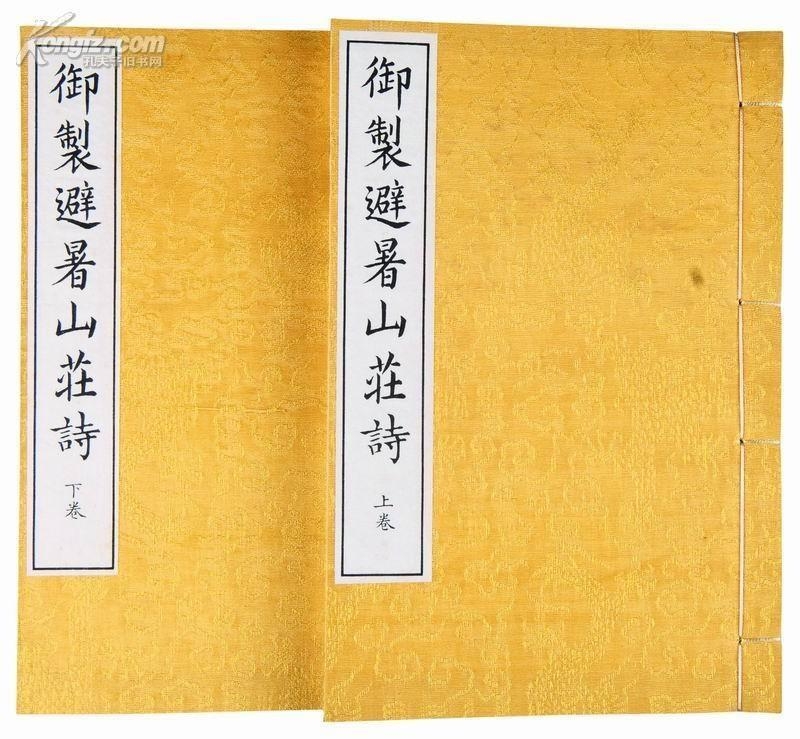 Kongfz.com
孔夫子旧书网
御製避暑山莊詩
上卷
御製避暑山莊詩
下卷